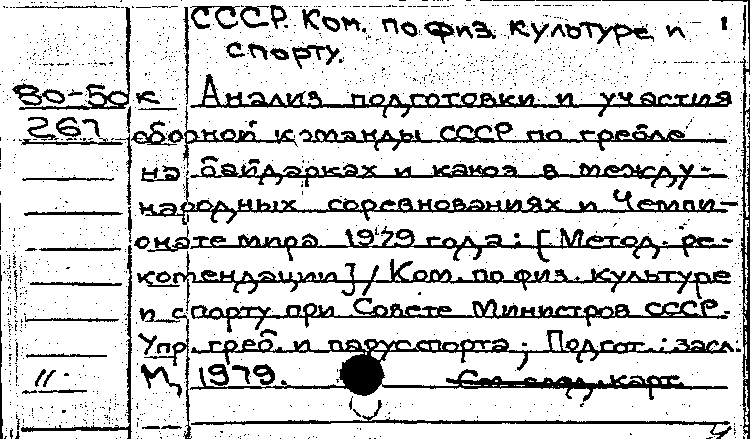 СССР. Ком. по физ. культуре и
спорту.
80-50к Анализ подготовки и участия
267 сборной команды СССР по гребле
на байдарках и каноэ в между-
народных соревнованиях и Чемпи-
онате мира 1979 года: [Метод. ре-
комендации] / Ком. по физ. культуре
и спорту при Совете Министров СССР.
Упр. греб. и парус. спорта; Подгот.: засл.
11. М, 1979. См. след. карт.